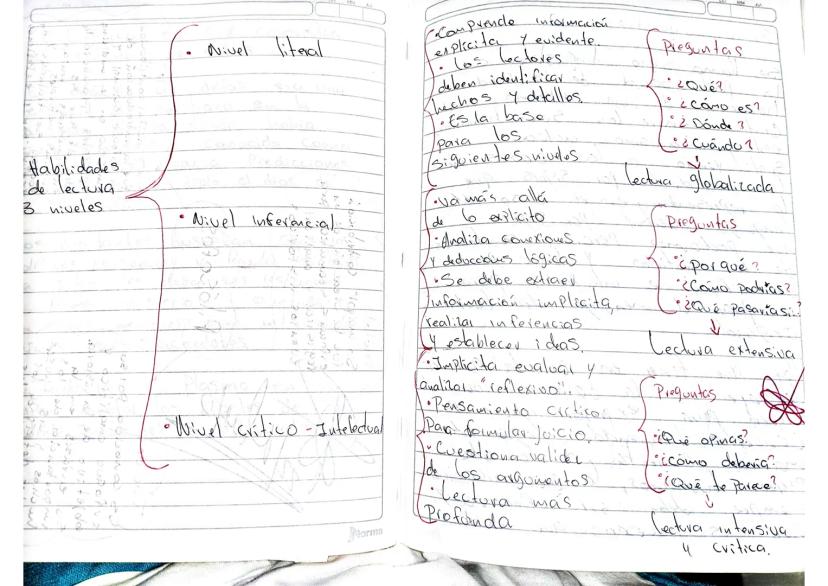 Habilidades
de lectura
3 niveles
• Nivel literal
• Nivel inferencial
• Nivel crítico - Intelectual
Norma
• Comprende información
explícita y evidente.
• Los lectores
deben identificar
hechos y detalles.
• Es la base
para los
siguientes niveles
Preguntas
• ¿Qué?
• ¿Cómo es?
• ¿Dónde?
• ¿Cuándo?
Lectura globalizada
• Va más allá
de lo explícito
• Analiza conexiones
y deducciones lógicas
• Se debe extraer
información implícita,
realizar inferencias
y establecer ideas.
Preguntas
• ¿Por qué?
• ¿Cómo podrías?
• ¿Qué pasaría si?
Lectura extensiva
• Implícita evaluar y
analizar "reflexivo".
• Pensamiento crítico
Para formular juicio.
• Cuestiona validez
de los argumentos
• Lectura más
Profunda
Preguntas
• ¿Qué opinas?
• ¿Cómo debería?
• ¿Qué te parece?
Lectura intensiva
y crítica.